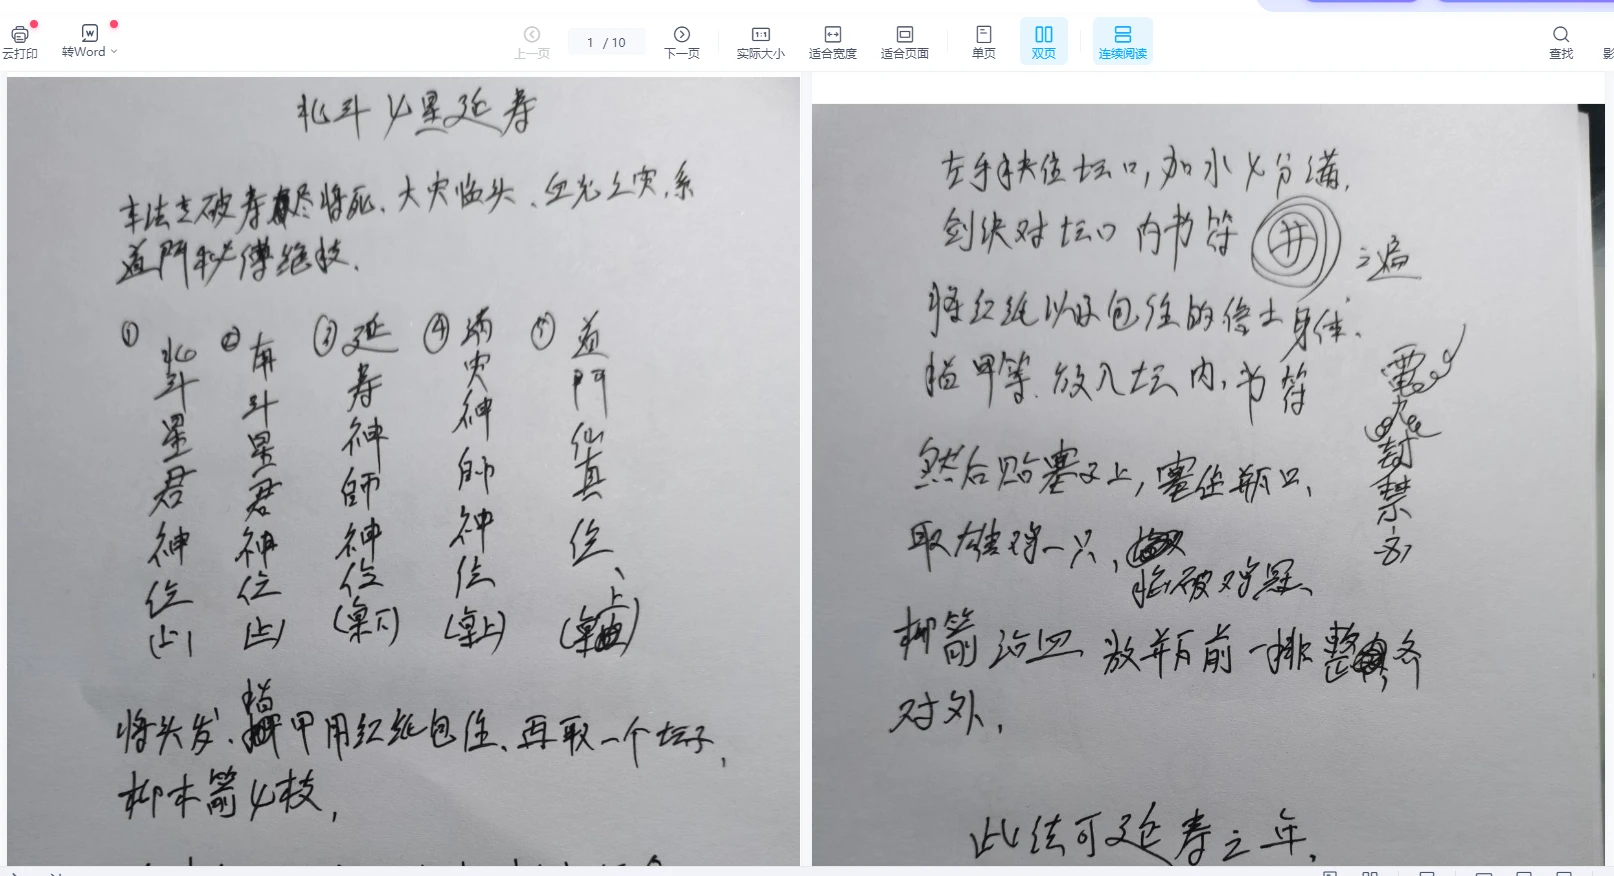 云打印
转Word
上一页
1 / 10
下一页
实际大小
适合宽度
适合页面
单页
双页
连续阅读
查找
北斗七星延寿
本法专破寿尽将死、大灾临头、血光之灾,系
道門秘傳绝技.
① 北斗星君神位(上)
② 南斗星君神位(上)
③ 延寿神師神位(桌下)
④ 消灾神師神位(桌上)
⑤ 道門仙真位、(桌上)
将头发、指甲用红纸包住、再取一个坛子,
柳木箭七枝,
左手抉位坛口,加水七分满,
剑诀对坛口内书符 井 三遍
将红纸以及包住的修士身体、
指甲等.放入坛内,书符
然后贴塞子上,塞住瓶口,
取雄鸡一只,
临破鸡冠、
柳箭沾血 放瓶前一排整,各
对外,
此法可延寿三年.